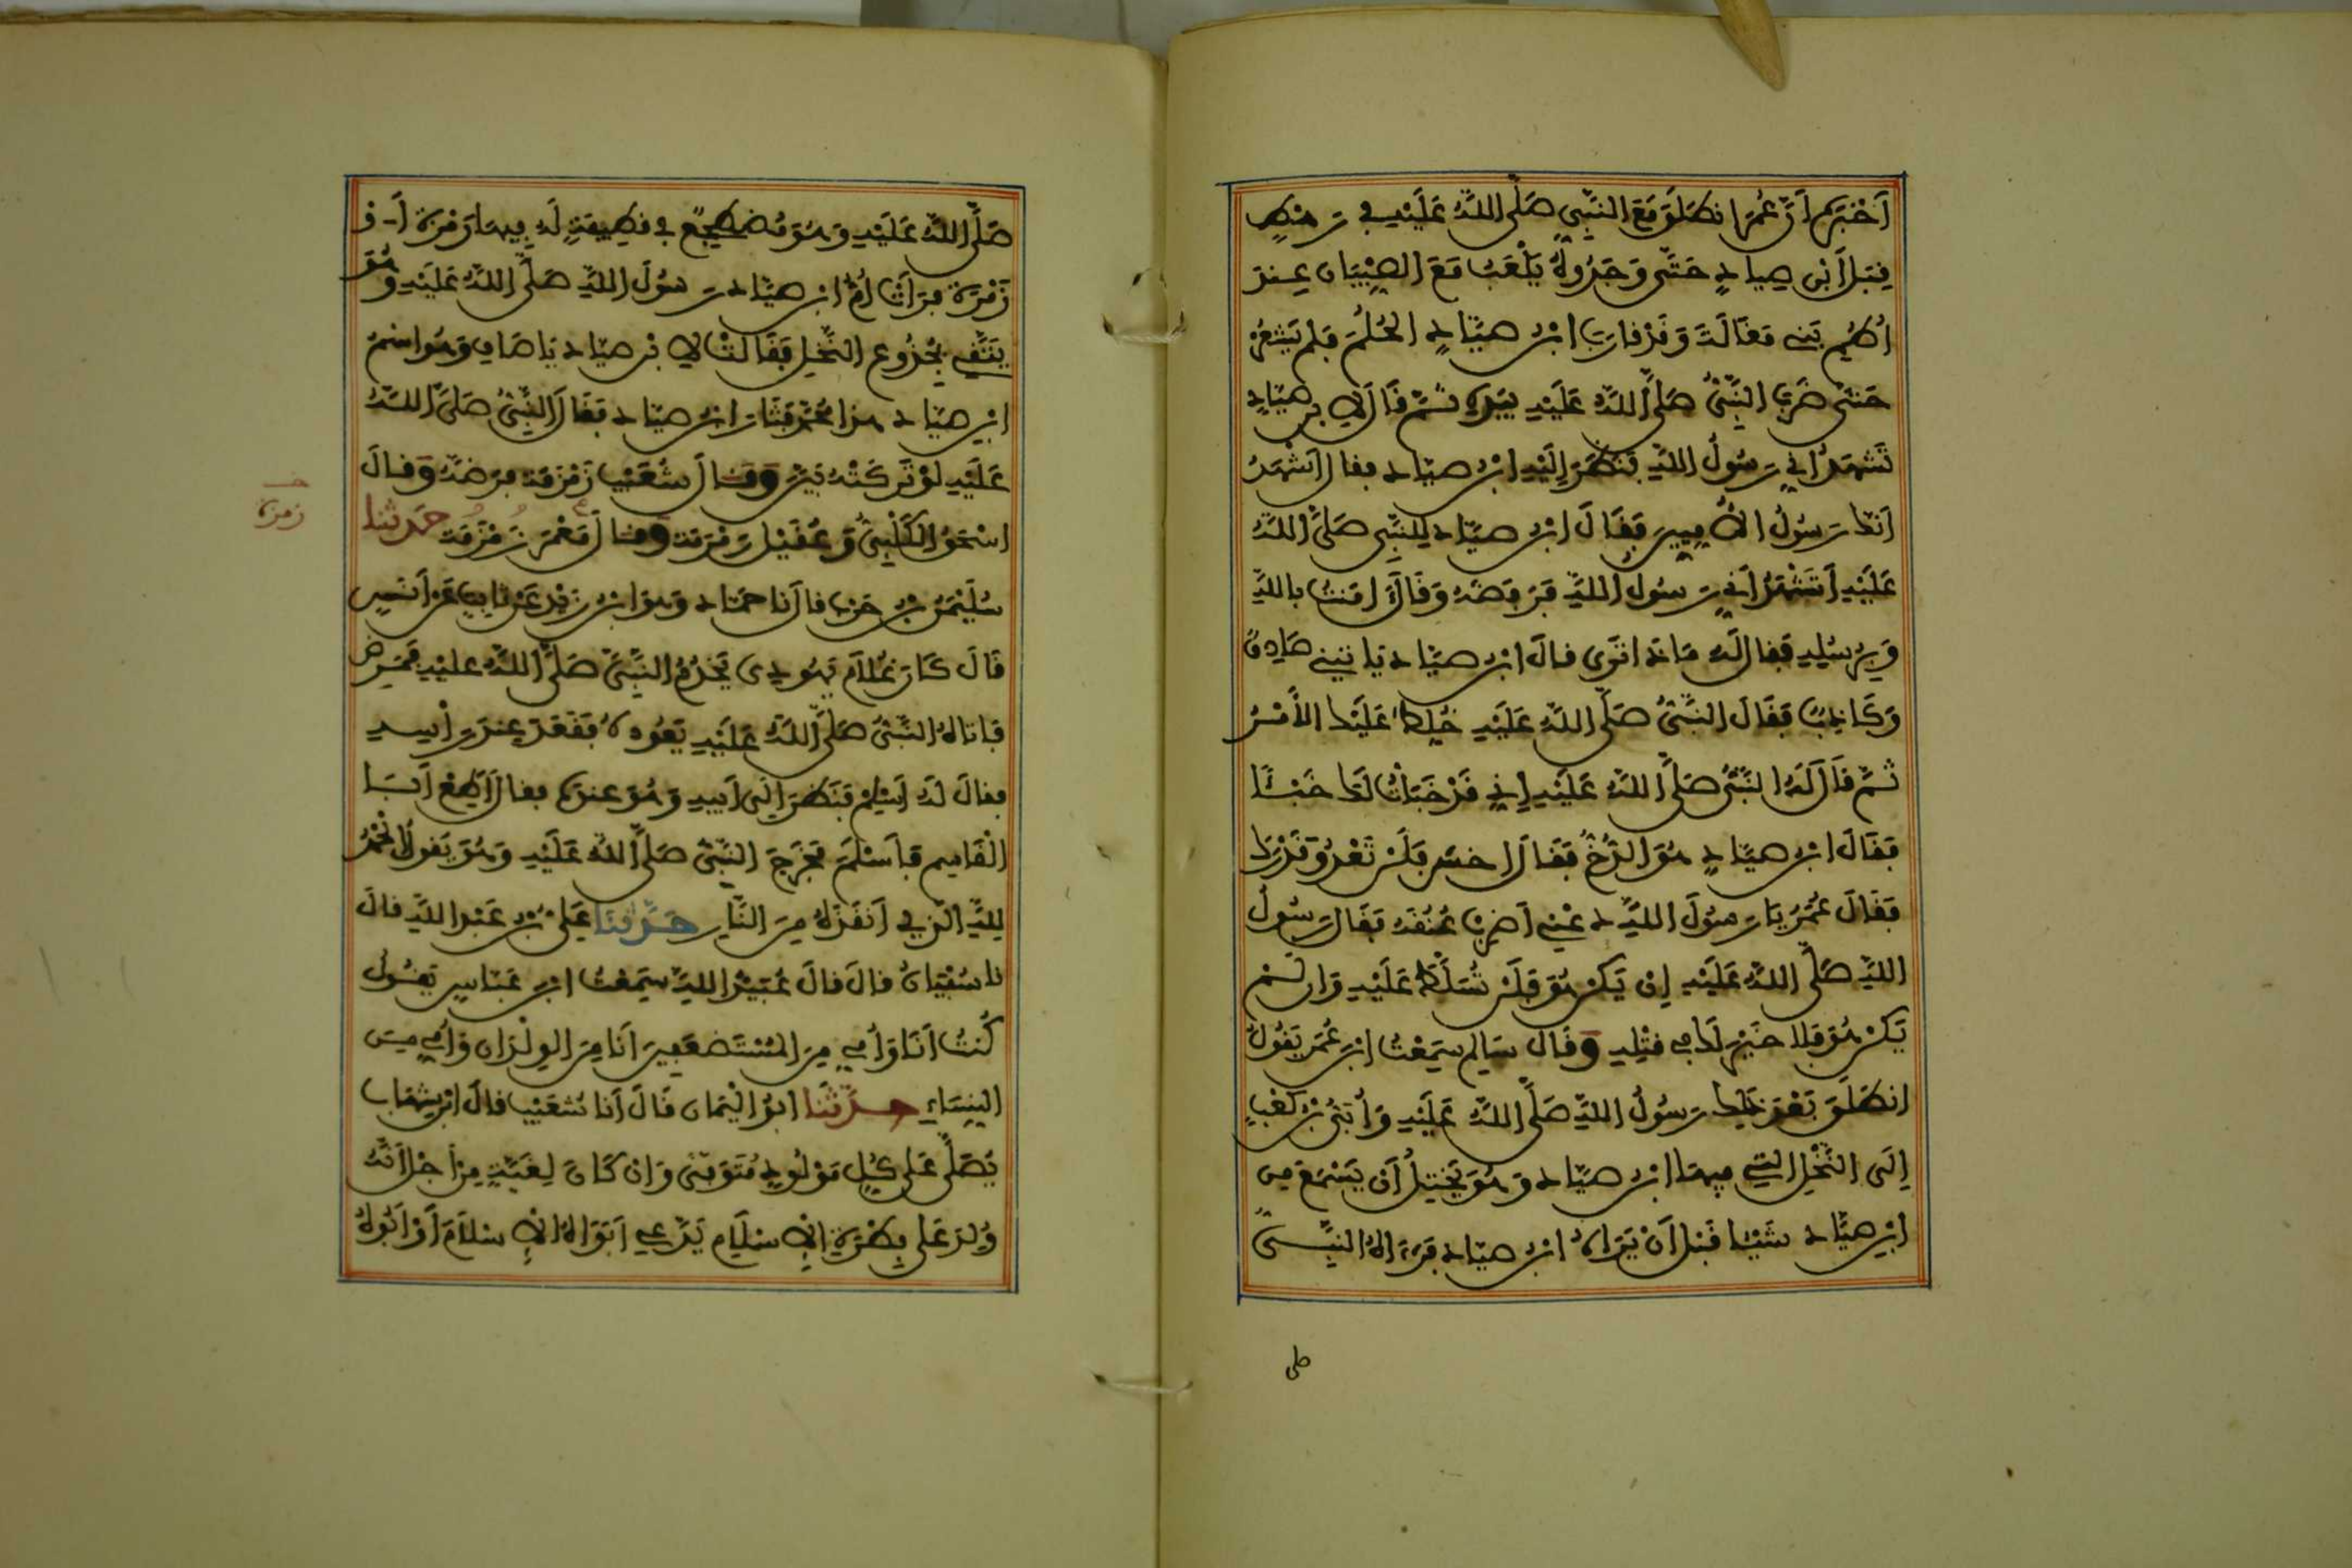 أَخْبَرَهُ أَنَّ عُمَرَ انطَلَقَ مَعَ النَّبِيِّ صَلَّى اللَّهُ عَلَيْهِ فِي رَهْطٍ
قِبَلَ ابْنِ صيادٍ حَتَّى وَجَدُوهُ يَلْعَبُ مَعَ الصِّبْيَانِ عِندَ
أُطُمِ بَنِي مَغَالَةَ وَقَدْ قَارَبَ ابْنُ صَيَّادٍ الحُلُمَ فَلَمْ يَشْعُرْ
حَتَّى ضَرَبَ النَّبِيُّ صَلَّى اللَّهُ عَلَيْهِ بِيَدِهِ ثُمَّ قَالَ لِابْنِ صَيَّادٍ
تَشْهَدُ أَنِّي رَسُولُ اللَّهِ فَنَظَرَ إِلَيْهِ ابْنُ صَيَّادٍ فقال أَشْهَدُ
أَنَّكَ رَسُولُ الأُمِّيِّينَ فَقَالَ ابْنُ صَيَّادٍ لِلنَّبِيِّ صَلَّى اللَّهُ
عَلَيْهِ أَتَشْهَدُ أَنِّي رَسُولُ اللَّهِ فَرَفَضَهُ وَقَالَ آمَنتُ بِاللَّهِ
وَبِرُسُلِهِ فَقَالَ لَهُ مَاذَا تَرَى قَالَ ابْنُ صَيَّادٍ يَاتِينِي صَادِقٌ
وَكَاذِبٌ فَقَالَ النَّبِيُّ صَلَّى اللَّهُ عَلَيْهِ خُلِطَ عَلَيْكَ الأَمْرُ
ثُمَّ قَالَ لَهُ النَّبِيُّ صَلَّى اللَّهُ عَلَيْهِ إِنِّي قَدْ خَبَأْتُ لَكَ خَبْئًا
فَقَالَ ابْنُ صَيَّادٍ هُوَ الدُّخُّ فَقَالَ اخسَ فَلَنْ تَعْدُوَ قَدْرَكَ
فَقَالَ عُمَرُ يَا رَسُولَ اللَّهِ دَعْنِي أَضْرِبْ عُنُقَهُ فَقَالَ رَسُولُ
اللَّهِ صَلَّى اللَّهُ عَلَيْهِ إِن يَكُنْ هُوَ فَلَنْ تُسَلَّطَ عَلَيْهِ وَإِن لَّمْ
يَكُنْ هُوَ فَلَا خَيْرَ لَكَ فِي قَتْلِهِ وَقَالَ سَالِم سَمِعْتُ ابْنَ عُمَرَ يَقُولُ
انطَلَقَ بَعْدَ ذَلِكَ رَسُولُ اللَّهِ صَلَّى اللَّهُ عَلَيْهِ وَأُبَيُّ بْنُ كَعْبٍ
إِلَى النَّخْلِ الَّتِي فِيهَا ابْنُ صَيَّادٍ وَهُوَ يَخْتِلُ أَنْ يَسْمَعَ مِنَ
ابْنِ صَيَّادٍ شَيْئًا قَبْلَ أَنْ يَرَاهُ ابْنُ صَيَّادٍ فَرَءَاهُ النَّبِيُّ
صلى
صَلَّى اللَّهُ عَلَيْهِ وَهُوَ مُضْطَجِعٌ فِي قَطِيفَةٍ لَهُ فِيهَا رَمْزَةٌ أَوْ
زَمْرَةٌ فَرَأَتْ أُمُّ ابْنِ صَيَّادٍ رَسُولَ اللَّهِ صَلَّى اللَّهُ عَلَيْهِ وَهُوَ
يَتَّقِي بِجُذُوعِ النَّخْلِ فَقَالَتْ لِابْنِ صَيَّادٍ يَا صَافِ وَهُوَ اسْمُ
ابْنِ صَيَّادٍ هذا مُحَمَّدٌ فَثَارَ ابْنُ صَيَّادٍ فَقَالَ النَّبِيُّ صَلَّى اللَّهُ
عَلَيْهِ لَوْ تَرَكَتْهُ بَيَّنَ وَقَالَ شُعَيْبٌ زَمْزَمَة فَرَضَّهُ وَقَالَ
إِسْحَقُ الكَلْبِيُّ وَعُقَيْل رَمْرَمَة وَقَالَ مَعْمَر رَمْزَة حَدَّثَنَا
زمزة
سُلَيْمَنُ بْنُ حَرْبٍ قَالَ نَا حَمَّادٌ وَهُوَ ابْنُ زَيْدٍ عَنْ ثَابِتٍ عَنْ أَنَسٍ
قَالَ كَانَ غُلَامٌ يَهُودِيٌّ يَخْدُمُ النَّبِيَّ صَلَّى اللَّهُ عَلَيْهِ فَمَرِضَ
فَأَتَاهُ النَّبِيُّ صَلَّى اللَّهُ عَلَيْهِ يَعُودُهُ فَقَعَدَ عِندَ رَأْسِهِ
فَقَالَ لَهُ أَسْلِمْ فَنَظَرَ إِلَى أَبِيهِ وَهُوَ عِندَهُ فَقَالَ أَطِعْ أَبَا
الْقَاسِمِ فَأَسْلَمَ فَخَرَجَ النَّبِيُّ صَلَّى اللَّهُ عَلَيْهِ وَهُوَ يَقُولُ الْحَمْدُ
لِلَّهِ الَّذِي أَنقَذَهُ مِنَ النَّارِ حَدَّثَنَا عَلِيُّ بْنُ عَبْدِ اللَّهِ قَالَ
نَا سُفْيَانُ قَالَ قَالَ عُبَيْدُ اللَّهِ سَمِعْتُ ابْنَ عَبَّاسٍ يَقُولُ
كُنتُ أَنَا وَأُمِّي مِنَ الْمُسْتَضْعَفِينَ أَنَا مِنَ الوِلْدَانِ وَأُمِّي مِنَ
النِّسَاءِ حَدَّثَنَا أَبُو الْيَمَانِ قَالَ أَنَا شُعَيْبٌ قَالَ ابْنُ شِهَابٍ
يُصَلَّى عَلَى كُلِّ مَوْلُودٍ مُتَوَفًّى وَإِنْ كَانَ لِغَيَّةٍ مِنْ أَجْلِ أَنَّهُ
وُلِدَ عَلَى فِطْرَةِ الْإِسْلَامِ يَدَّعِي أَبَوَاهُ الْإِسْلَامَ أَوْ أَبُوهُ